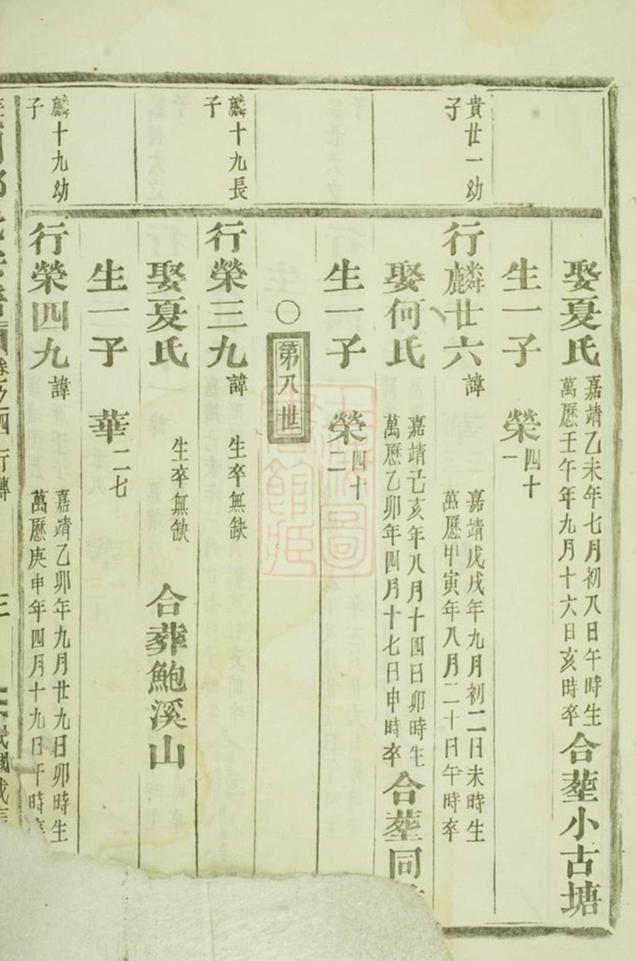 娶夏氏 嘉靖乙未年七月初八日午時生
萬歷壬午年九月十六日亥時卒 合塟小古塘
生一子 榮四十一
貴廿一幼子
行麟廿六諱 嘉靖戊戌年九月初二日未時生
萬歷甲寅年八月二十日午時卒
娶何氏 嘉靖己亥年八月十四日卯時生
萬歷乙卯年四月十七日申時卒 合塟同
生一子 榮四十二
○第八世
麟十九長子
行榮三九諱 生卒無缺
娶夏氏 生卒無缺 合葬鮑溪山
生一子 華二七
麟十九幼子
行榮四九諱 嘉靖乙卯年九月廿九日卯時生
萬歷庚申年四月十九日午時卒